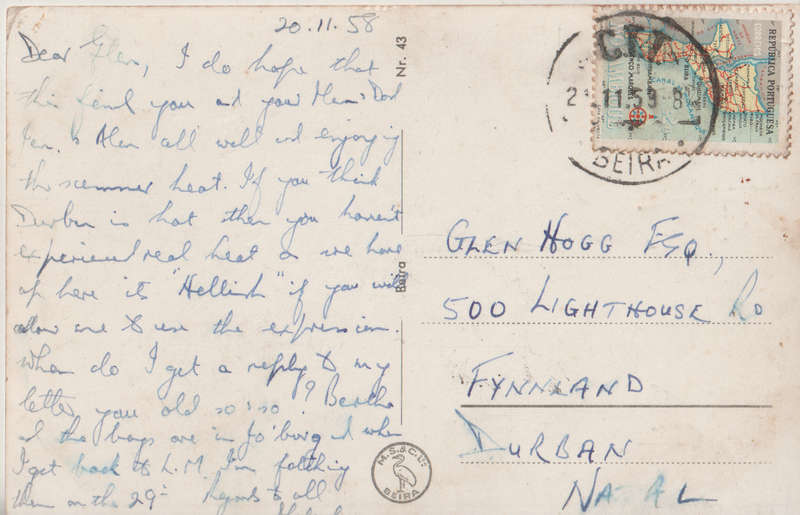 20.11.58
Dear Glen, I do hope that
this finds you and your Mum & Dad
all well and enjoying
the summer heat. If you think
Durban is hot then you haven't
experienced real heat as we have
up here its "Hellish" if you will
allow me to use the expression.
When do I get a reply to my
letter you old so & so? Bertha
and the boys are in Jo'burg and when
I get back to L.M. I'm fetching
them on the 29th Regards to all
Nr. 43
Beira
M.S.& C. Lda
BEIRA
C.T.T.
11.59 8
BEIRA
REPÚBLICA PORTUGUESA
GLEN HOGG ESQ.,
500 LIGHTHOUSE RD
FYNNLAND
DURBAN
NATAL